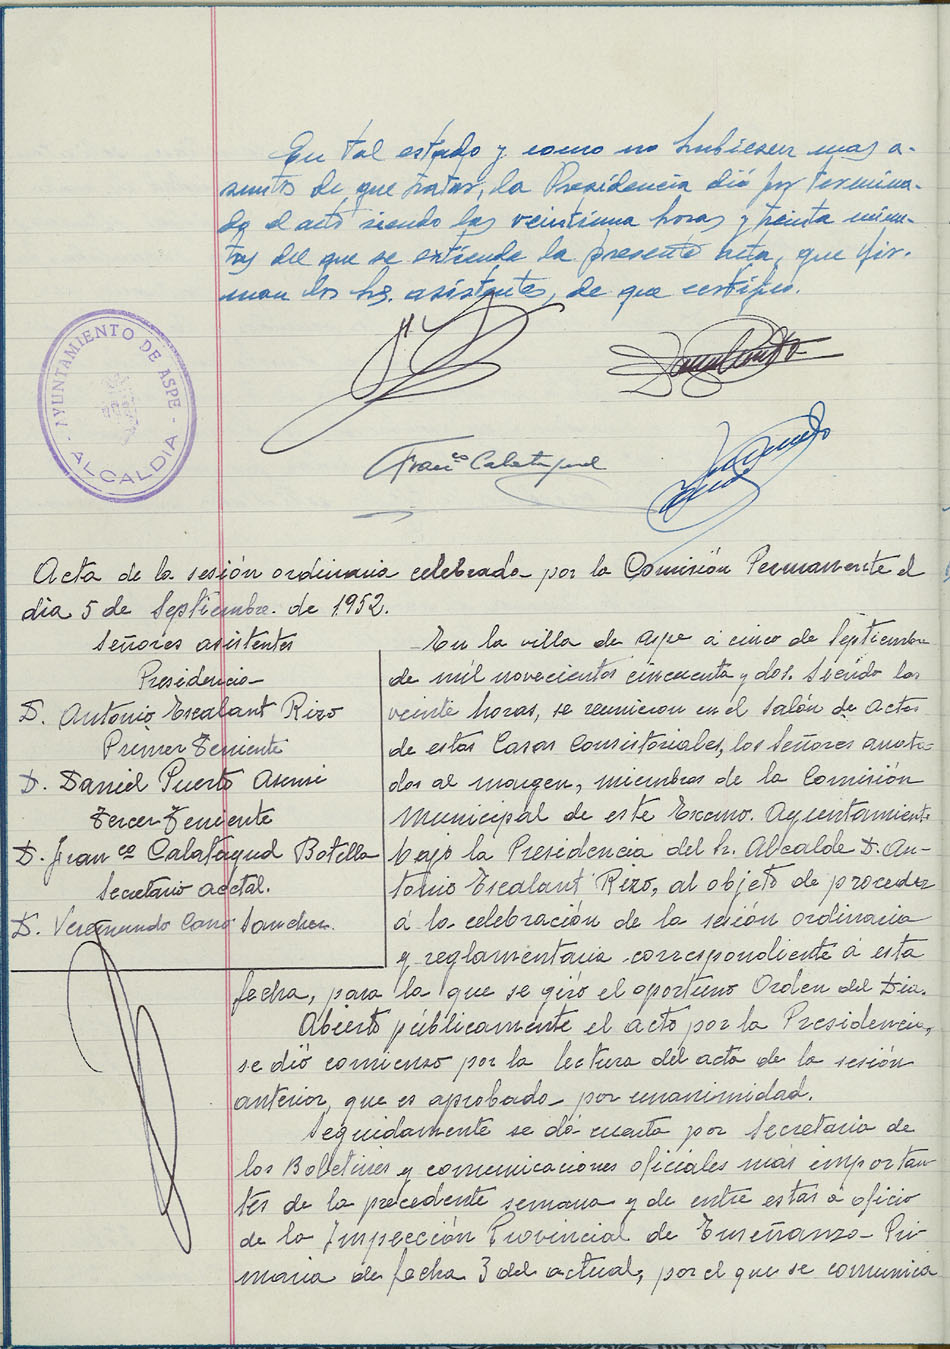 En tal estado y como no hubiesen mas a-
sunto de que tratar, la Presidencia dió por termina-
do el acto siendo las veintiuna horas y treinta minu-
tos del que se extiende la presente acta, que fir-
man los Srs. asistentes, de que certifico.
AYUNTAMIENTO DE ASPE
- ALCALDIA -
Franco Calatayud
Acta de la sesión ordinaria celebrada por la Comisión Permanente el
dia 5 de Septiembre. de 1.952.
Señores asistentes
Presidencia
D. Antonio Escalant Rizo
Primer Teniente
D. Daniel Puerto Asensi
Tercer Teniente
D. Franco Calatayud Botella
Secretario acctal.
D. Veremundo Cano Sanchez.
En la villa de Aspe a cinco de Septiembre
de mil novecientos cincuenta y dos. Siendo las
veinte horas, se reunieron en el Salón de Actos
de estas Casas Consistoriales, los Señores anota-
dos al margen, miembros de la Comisión
Municipal de este Excmo. Ayuntamiento
bajo la Presidencia del Sr. Alcalde D. An-
tonio Escalant Rizo, al objeto de proceder
á la celebración de la sesión ordinaria
y reglamentaria correspondiente á esta
fecha, para la que se giró el oportuno Orden del Dia.
Abierto públicamente el acto por la Presidencia,
se dió comienzo por la lectura del acta de la sesión
anterior, que es aprobada por unanimidad.
Seguidamente se dá cuenta por Secretaria de
los Boletines y comunicaciones oficiales mas importan-
tes de la precedente semana y de entre estas á oficio
de la Inspección Provincial de Enseñanza Pri-
maria de fecha 3 del actual, por el que se comunica